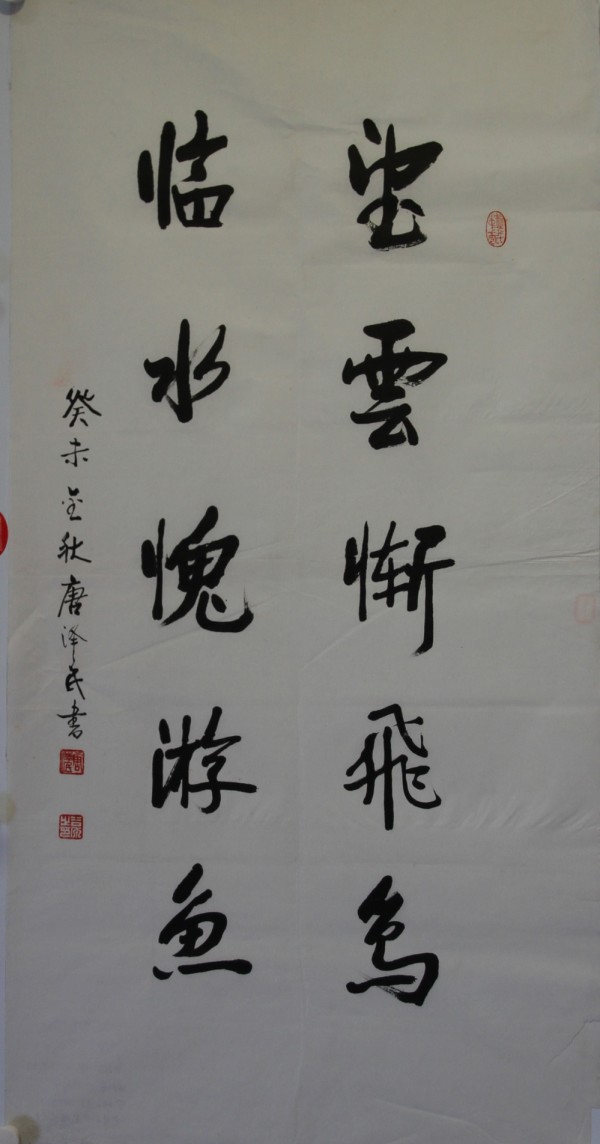 望雲慚飛鳥
临水愧游魚
癸未金秋唐泽民書